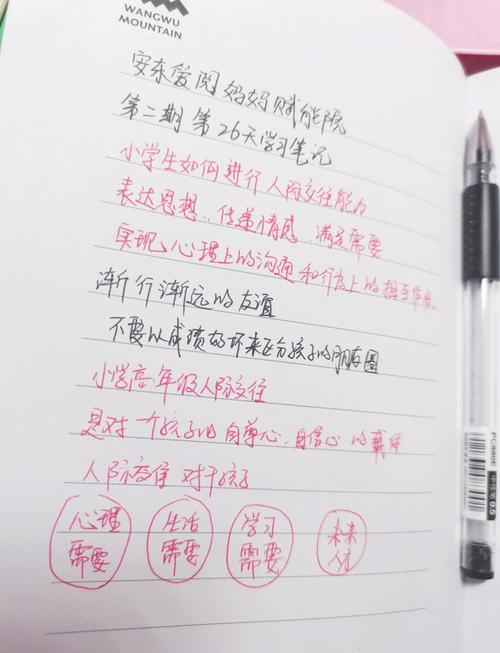 WANGWU
MOUNTAIN
安东爱阅妈妈赋能院
第二期第26天学习笔记
小学生如何进行人际交往能力
表达思想、传递情感、满足需要
实现心理上的沟通和行为上的相互作用。
渐行渐远的友谊
不要以成绩好坏来区分孩子的朋友圈
小学高年级人际交往
是对一个孩子的自尊心、自信心的载体
人际交往对于孩子
心理需要 生活需要 学习需要 未来人才
0.5